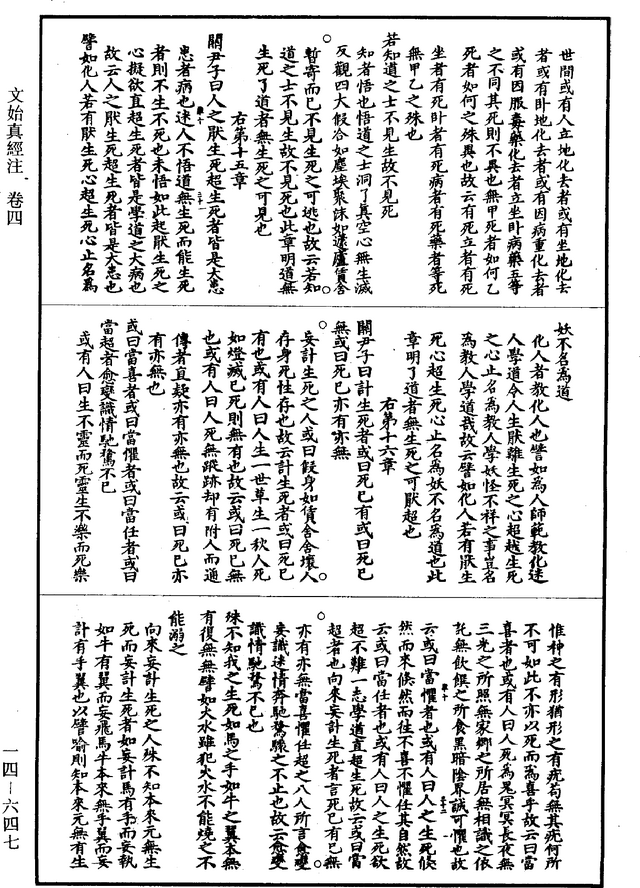 文始真經注　卷四
一四—六四七
世間或有人立地化去者或有坐地化去
者或有卧地化去者或有因病重化去者
或有因服毒藥化去者立坐卧病藥五等
之不同其死則不異也無甲死者如何乙
死者如何之殊異也故云有死立者有死
坐者有死卧者有死病者有死藥者等死
無甲乙之殊也
若知道之士不見生故不見死
知者悟也悟道之士洞了真空心無生滅
反觀四大假合如塵埃聚沫如蘧廬賃舍
暫寄而已不見生死之可逃也故云若知
道之士不見生故不見死也此章明道無
生死了道者無生死之可見也
右第十五章
關尹子曰人之厭生死超生死者皆是大患
患者病也迷人不悟道無生死而能生死
者則不生不死也未悟如此起厭生死之
心擬欲直超生死者皆是學道之大病也
故云人之厭生死超生死者皆是大患也
譬如化人若有厭生死心超生死心止名為
妖不名為道
化人者教化人也譬如為人師範教化迷
人學道令人生厭離生死之心超越生死
之心止名為教人學妖怪不祥之事豈名
為教人學道哉故云譬如化人若有厭生
死心超生死心止名為妖不名為道也此
章明了道者無生死之可厭超也
右第十六章
關尹子曰計生死者或曰死已有或曰死已
無或曰死已亦有亦無
妄計生死之人或曰假身如賃舍舍壞人
存身死性存也故云計生死者或曰死已
有也或有人曰人生一世草生一秋人死
如燈滅已死則無有也故云或曰死已無
也或有人曰人死無蹤跡却有附人而通
傳者直疑亦有亦無也故云或曰死已亦
有亦無也
或曰當喜者或曰當懼者或曰當任者或曰
當超者愈變識情馳騖不已
或有人曰生不靈而死靈生不樂而死樂
惟神之有形猶形之有疣苟無其疣何所
不可如此不亦以死而為喜乎故云曰當
喜者也或有人曰人死為鬼冥冥長夜無
三光之所照無家鄉之所居無相識之依
託無飲饌之所食黑暗陰界誠可懼也故
云或曰當懼者也或有人曰人之生死倏
然而來倏然而往不喜不懼任其自然故
云或曰當任者也或有人曰人之生死欲
超不難一志學道直超生死故云或曰當
超者也向來妄計生死者言死已有已無
亦有亦無當喜懼任超之八人所言愈變
妄識迷情奔馳騖驟之不止也故云愈變
識情馳騖不已也
殊不知我之生死如馬之手如牛之翼本無
有復無無譬如火水雖犯火水不能燒之不
能溺之
向來妄計生死之人殊不知本來元無生
死而妄計生死者如妄計馬有手而妄執
如牛有翼而妄飛馬牛本來無手翼而妄
計有手翼也以譬喻則知本來元無有生